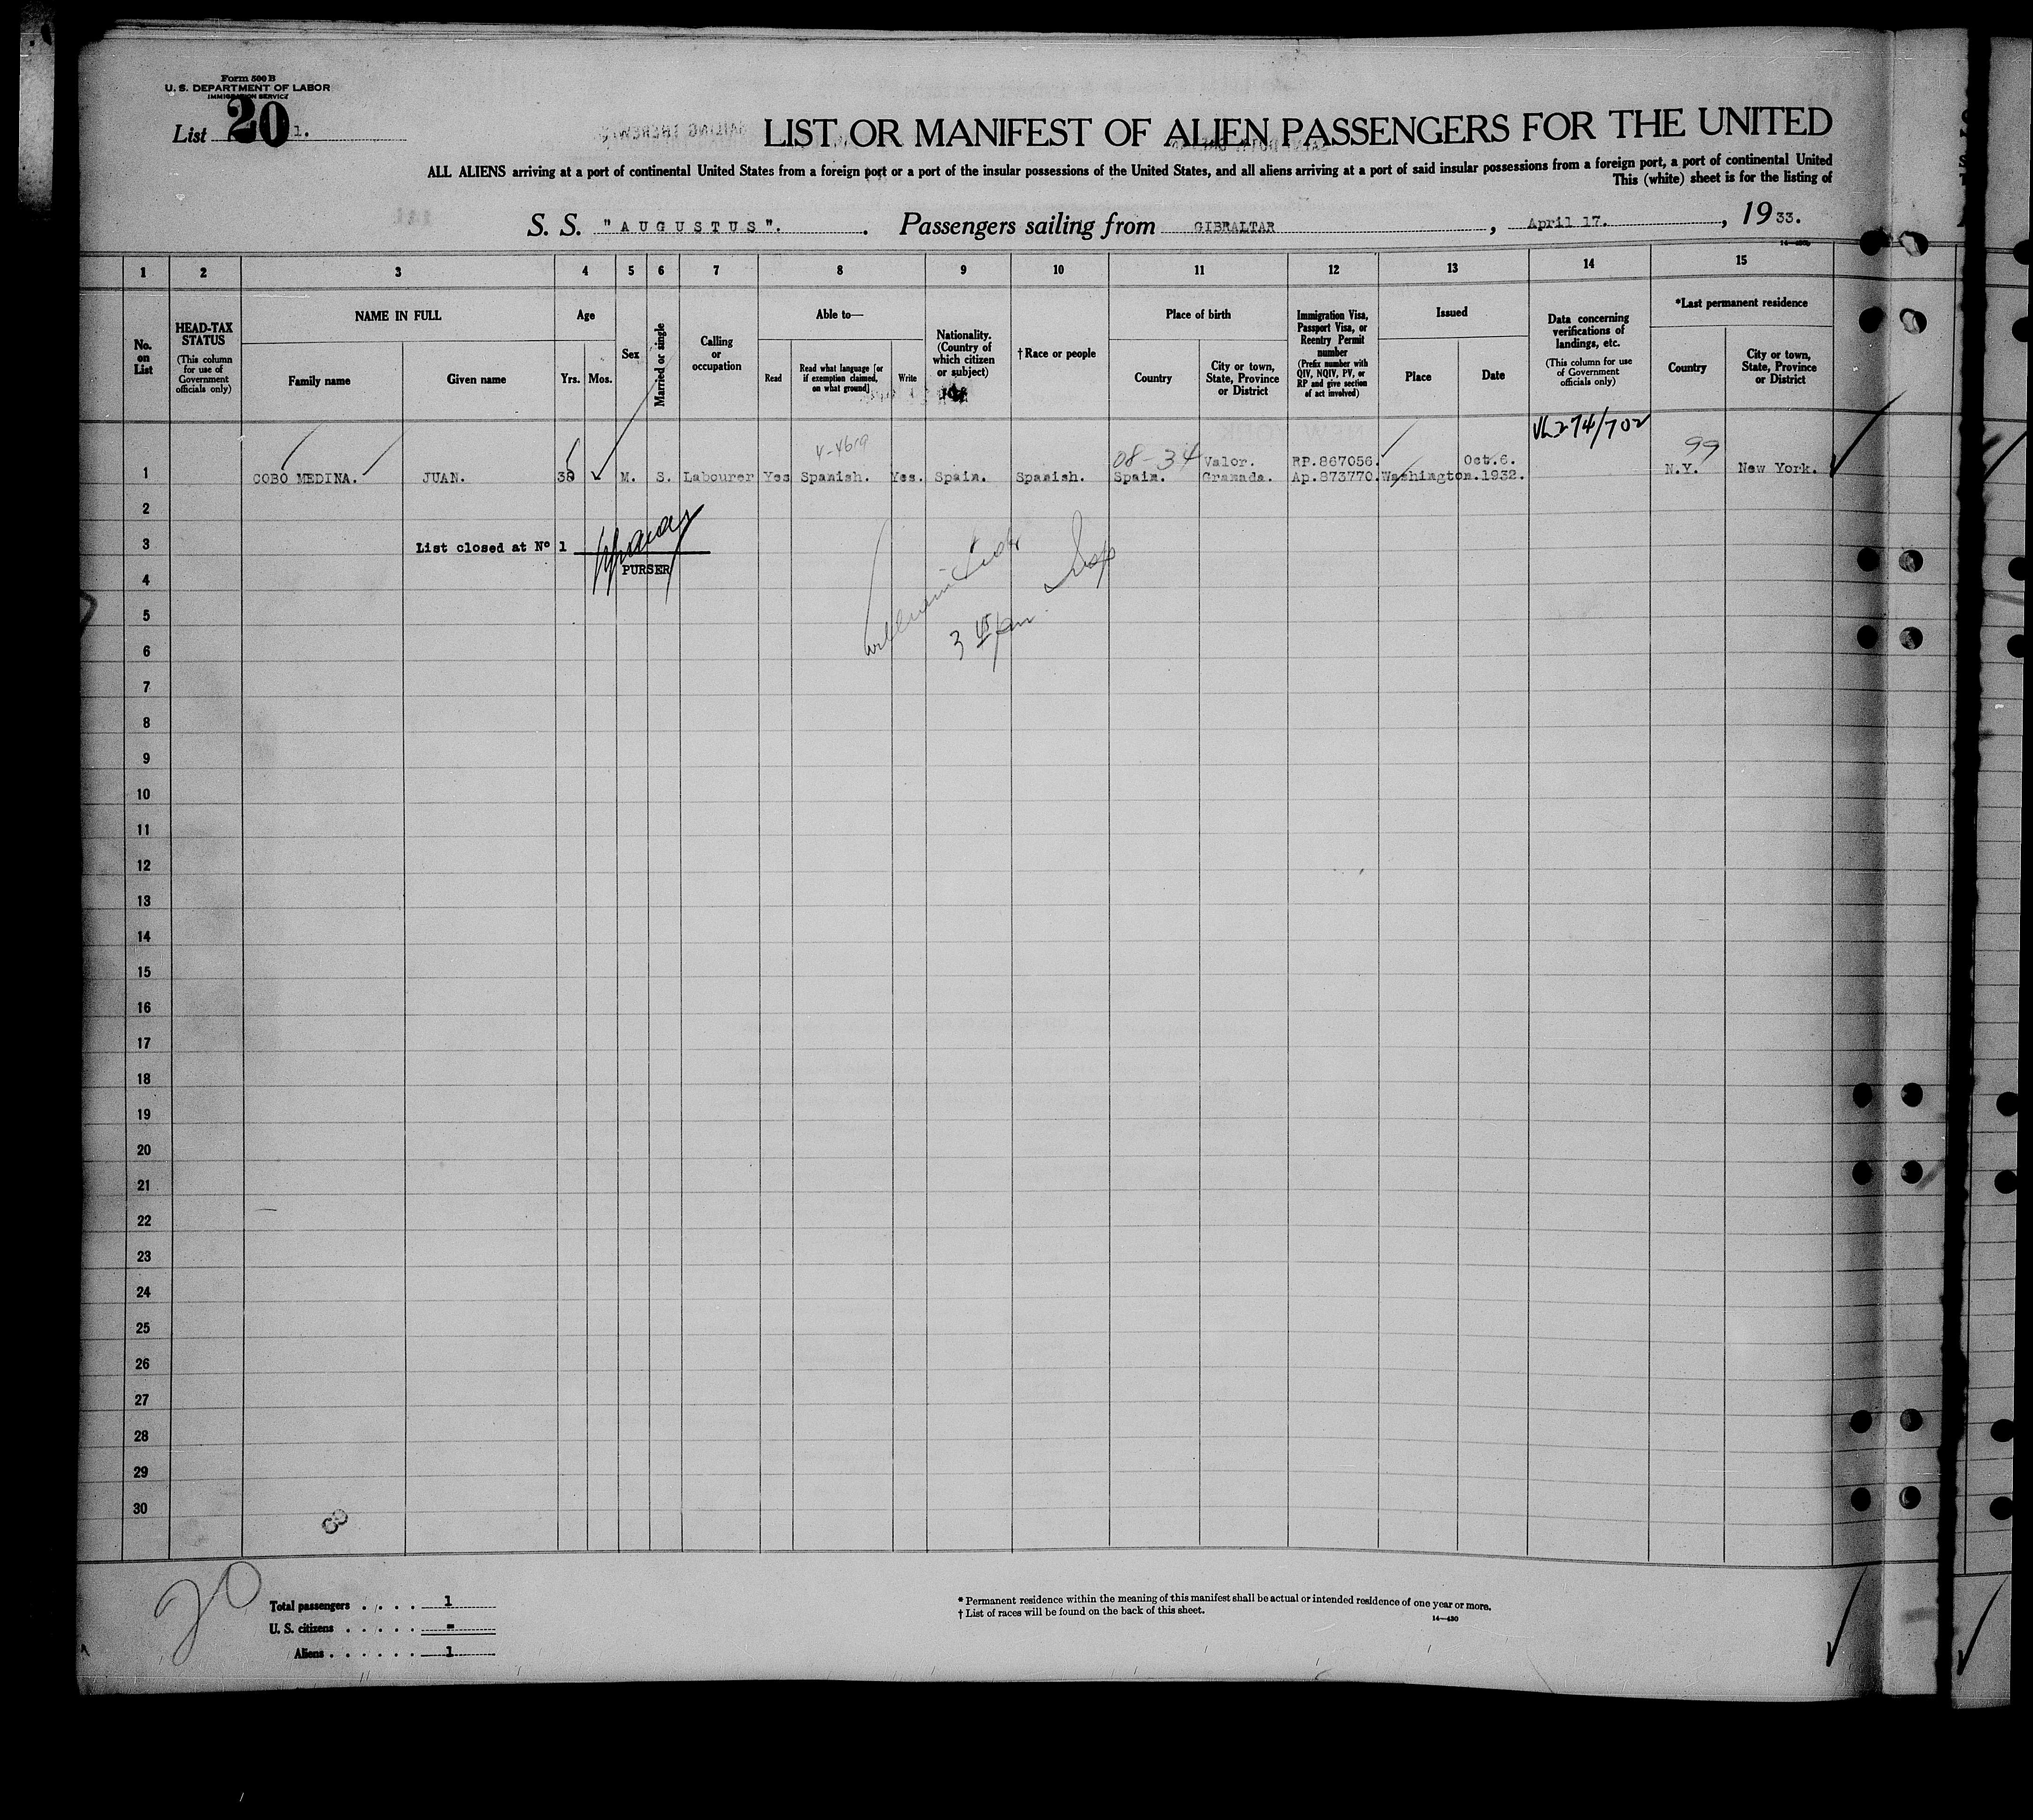 Form 500 B
U. S. DEPARTMENT OF LABOR
IMMIGRATION SERVICE
List 20 1.
LIST OR MANIFEST OF ALIEN PASSENGERS FOR THE UNITED
ALL ALIENS arriving at a port of continental United States from a foreign port or a port of the insular possessions of the United States, and all aliens arriving at a port of said insular possessions from a foreign port, a port of continental United
This (white) sheet is for the listing of
S. S. "AUGUSTUS". Passengers sailing from GIBRALTAR, April 17., 1933.
1 2 3 4 5 6 7 8 9 10 11 12 13 14 15
No. on List
HEAD-TAX STATUS
(This column for use of Government officials only)
NAME IN FULL
Family name
Given name
Age
Yrs.
Mos.
Sex
Married or single
Calling or occupation
Able to—
Read
Read what language [or if exemption claimed, on what ground]
Write
Nationality. (Country of which citizen or subject)
†Race or people
Place of birth
Country
City or town, State, Province or District
Immigration Visa, Passport Visa, or Reentry Permit number
(Prefix number with QIV, NQIV, PV, or RP and give section of act involved)
Issued
Place
Date
Data concerning verifications of landings, etc.
(This column for use of Government officials only)
*Last permanent residence
Country
City or town, State, Province or District
4-4619
08-34 Valor. RP.867056. Oct.6. 99
1 COBO MEDINA. JUAN. 38 M. S. Labourer Yes Spanish. Yes. Spain. Spanish. Spain. Granada. Ap.873770. Washington. 1932. N.Y. New York.
2
3 List closed at Nº 1
PURSER
4
5
6
7
8
9
10
11
12
13
14
15
16
17
18
19
20
21
22
23
24
25
26
27
28
29
30
20
Total passengers . . . . 1
U. S. citizens . . . . . -
Aliens . . . . . . 1
* Permanent residence within the meaning of this manifest shall be actual or intended residence of one year or more.
† List of races will be found on the back of this sheet.
14—430